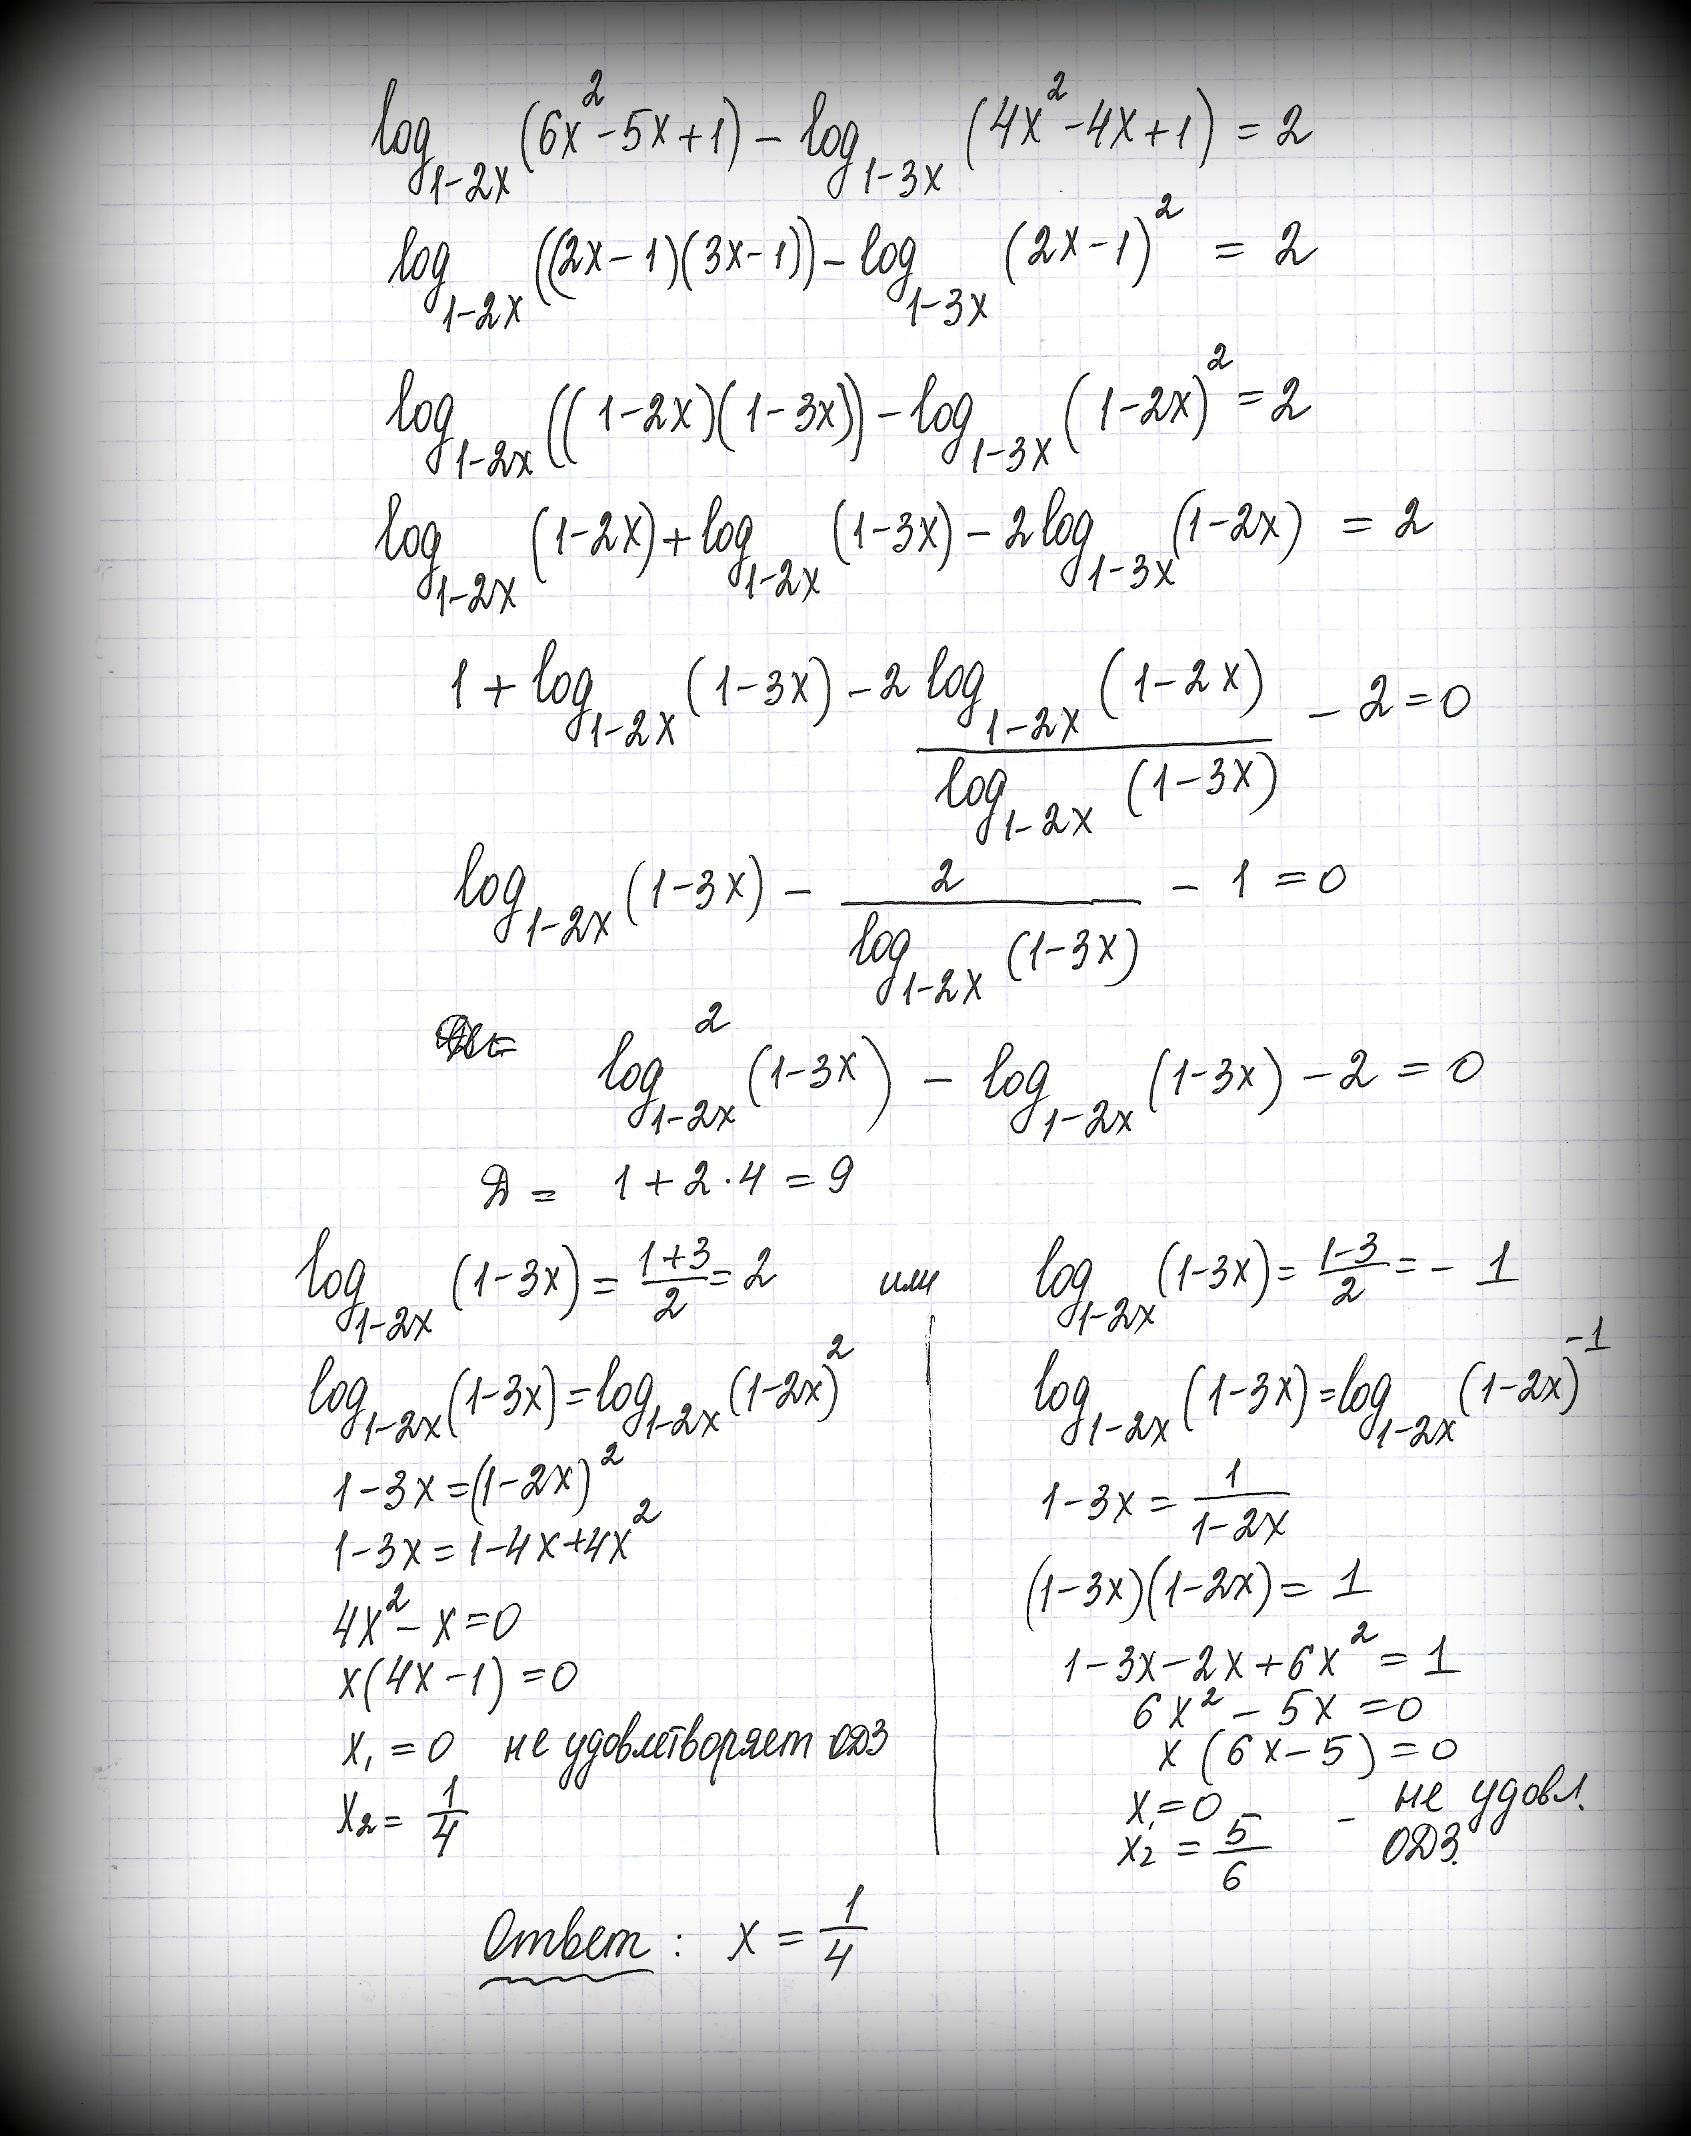 log₁₋₂ₓ (6x² - 5x + 1) - log₁₋₃ₓ (4x² - 4x + 1) = 2
log₁₋₂ₓ ((2x - 1)(3x - 1)) - log₁₋₃ₓ (2x - 1)² = 2
log₁₋₂ₓ ((1 - 2x)(1 - 3x)) - log₁₋₃ₓ (1 - 2x)² = 2
log₁₋₂ₓ (1 - 2x) + log₁₋₂ₓ (1 - 3x) - 2 log₁₋₃ₓ (1 - 2x) = 2
1 + log₁₋₂ₓ (1 - 3x) - 2 log₁₋₂ₓ (1 - 2x) / log₁₋₂ₓ (1 - 3x) - 2 = 0
log₁₋₂ₓ (1 - 3x) - 2 / log₁₋₂ₓ (1 - 3x) - 1 = 0
log²₁₋₂ₓ (1 - 3x) - log₁₋₂ₓ (1 - 3x) - 2 = 0
Д = 1 + 2 · 4 = 9
log₁₋₂ₓ (1 - 3x) = (1+3)/2 = 2 или log₁₋₂ₓ (1 - 3x) = (1-3)/2 = - 1
log₁₋₂ₓ (1 - 3x) = log₁₋₂ₓ (1 - 2x)²
1 - 3x = (1 - 2x)²
1 - 3x = 1 - 4x + 4x²
4x² - x = 0
x(4x - 1) = 0
x₁ = 0 не удовлетворяет ОДЗ
x₂ = 1/4
log₁₋₂ₓ (1 - 3x) = log₁₋₂ₓ (1 - 2x)⁻¹
1 - 3x = 1/(1 - 2x)
(1 - 3x)(1 - 2x) = 1
1 - 3x - 2x + 6x² = 1
6x² - 5x = 0
x (6x - 5) = 0
x₁ = 0
x₂ = 5/6 - не удовл. ОДЗ.
Ответ: x = 1/4